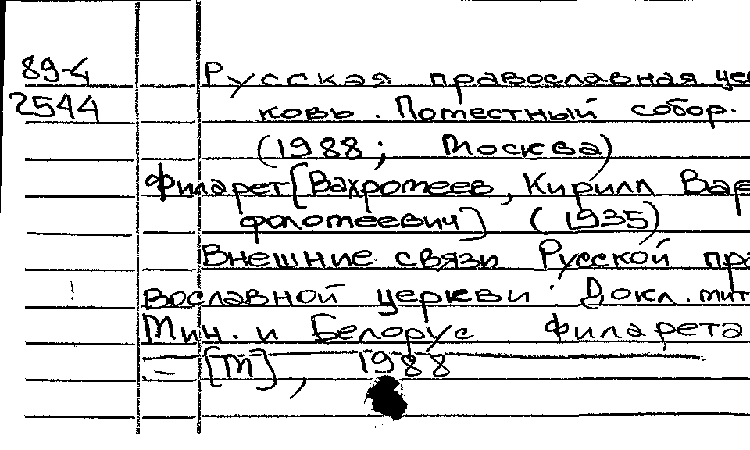 89-4 Русская православная цер
2544 ковь. Поместный собор.
(1988; Москва)
Филарет[Вахромеев, Кирилл Вар
фоломеевич] (1935)
Внешние связи Русской пра
вославной церкви: Докл. мит.
Мин. и Белорус Филарета
– [М], 1988